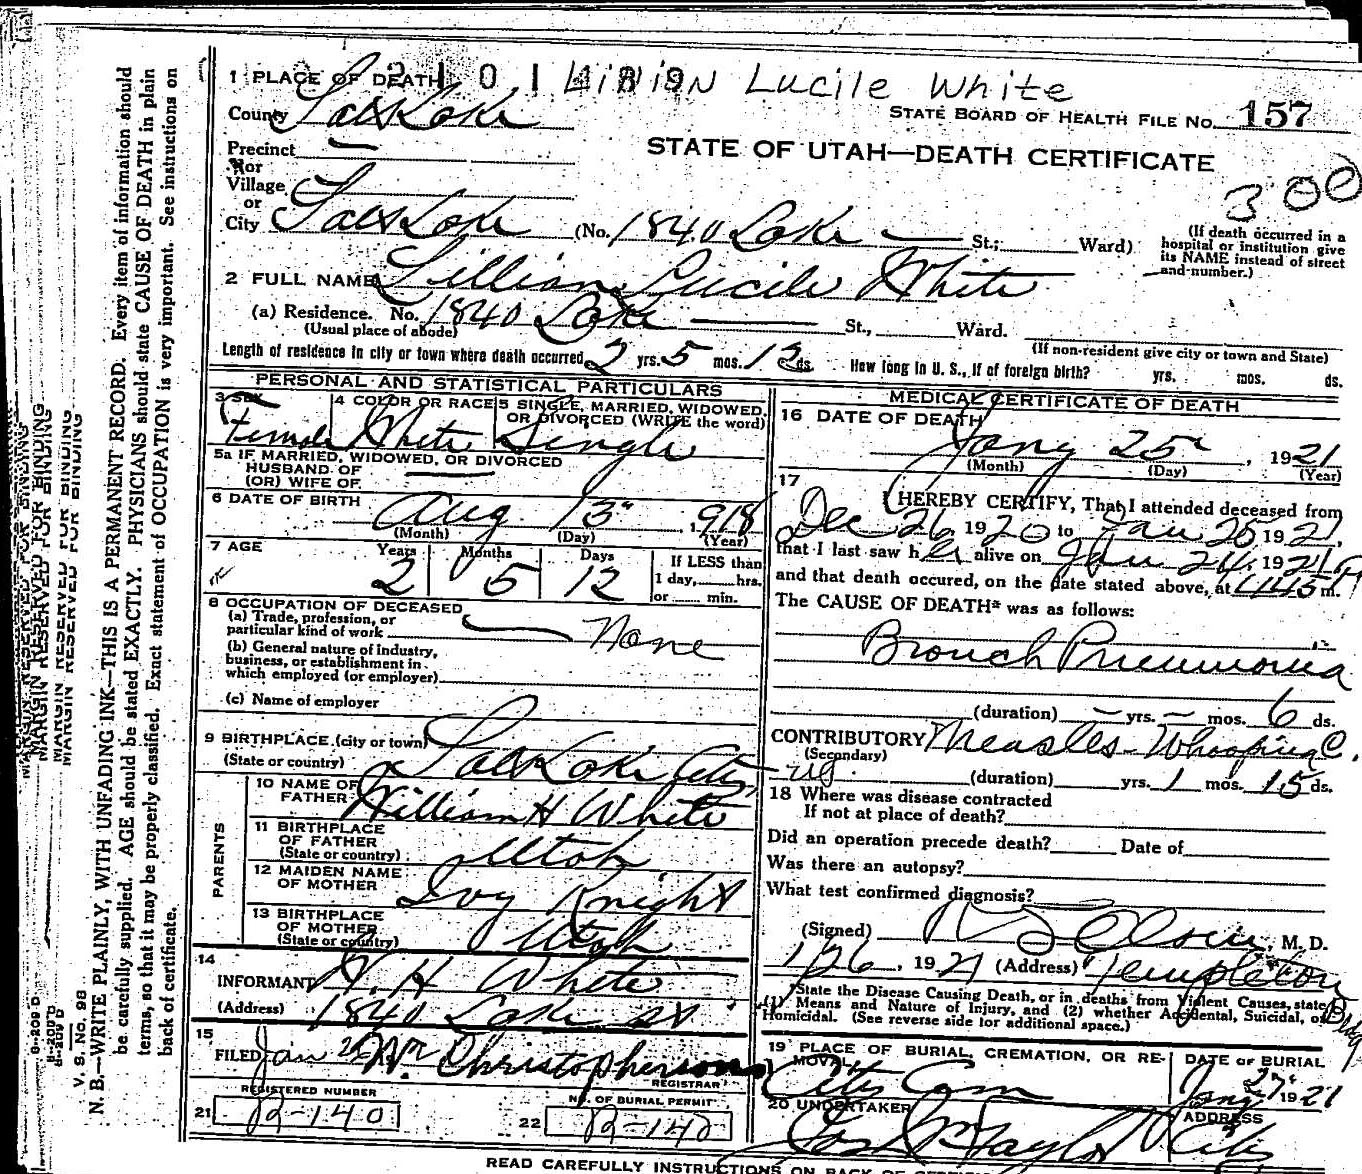 1 PLACE OF DEATH 2 1 0 1 4 8 9 Lillian Lucile White
County Salt Lake STATE BOARD OF HEALTH FILE No. 157
Precinct
or
Village
STATE OF UTAH—DEATH CERTIFICATE
300
or
City Salt Lake (No. 1840 Lake St.; Ward) (If death occurred in a hospital or institution give its NAME instead of street and number.)
2 FULL NAME Lillian Lucile White
(a) Residence. No. 1840 Lake St., Ward.
(Usual place of abode) (If non-resident give city or town and State)
Length of residence in city or town where death occurred 2 yrs. 5 mos. 12 ds. How long in U. S., if of foreign birth? yrs. mos. ds.
PERSONAL AND STATISTICAL PARTICULARS
3 SEX Female
4 COLOR OR RACE White
5 SINGLE, MARRIED, WIDOWED, OR DIVORCED (WRITE the word) Single
5a IF MARRIED, WIDOWED, OR DIVORCED
HUSBAND OF
(OR) WIFE OF
6 DATE OF BIRTH Aug 13" 1918
(Month) (Day) (Year)
7 AGE Years 2 Months 5 Days 12 If LESS than
1 day, hrs.
or min.
8 OCCUPATION OF DECEASED
(a) Trade, profession, or
particular kind of work None
(b) General nature of industry,
business, or establishment in
which employed (or employer)
(c) Name of employer
9 BIRTHPLACE (city or town)
(State or country) Salt Lake City
PARENTS
10 NAME OF
FATHER William H White
11 BIRTHPLACE
OF FATHER
(State or country) Utah
12 MAIDEN NAME
OF MOTHER Ivy Knight
13 BIRTHPLACE
OF MOTHER
(State or country) Utah
14
INFORMANT W. H. White
(Address) 1840 Lake St
15
FILED Jan
Christopherson
REGISTRAR
REGISTERED NUMBER
21 R-140
NO. OF BURIAL PERMIT
22 R-140
MEDICAL CERTIFICATE OF DEATH
16 DATE OF DEATH
Jany 25" , 1921
(Month) (Day) (Year)
17
I HEREBY CERTIFY, That I attended deceased from
Dec 26 1920 to Jan 25 1921,
that I last saw her alive on Jan 24, 1921
and that death occured, on the date stated above, at 445 m.
The CAUSE OF DEATH* was as follows:
Bronch Pneumonia
(duration) — yrs. — mos. 6 ds.
CONTRIBUTORY Measles - Whooping C.
(Secondary)
(duration) yrs. 1 mos. 15 ds.
18 Where was disease contracted
If not at place of death?
Did an operation precede death? Date of
Was there an autopsy?
What test confirmed diagnosis?
(Signed) Olson, M. D.
1/26, 1921 (Address) Templeton Bldg
*State the Disease Causing Death, or in deaths from Violent Causes, state
(1) Means and Nature of Injury, and (2) whether Accidental, Suicidal, or
Homicidal. (See reverse side for additional space.)
19 PLACE OF BURIAL, CREMATION, OR RE-
MOVAL
City Cem
DATE OF BURIAL
Jany 27" 1921
20 UNDERTAKER
Jos Wm Taylor
ADDRESS
City
READ CAREFULLY INSTRUCTIONS ON BACK OF
MARGIN RESERVED FOR BINDING
MARGIN RESERVED FOR BINDING
MARGIN RESERVED FOR BINDING
8-209 D
V. S. No. 98
N. B.—WRITE PLAINLY, WITH UNFADING INK—THIS IS A PERMANENT RECORD. Every item of information should
be carefully supplied. AGE should be stated EXACTLY. PHYSICIANS should state CAUSE OF DEATH in plain
terms, so that it may be properly classified. Exact statement of OCCUPATION is very important. See instructions on
back of certificate.